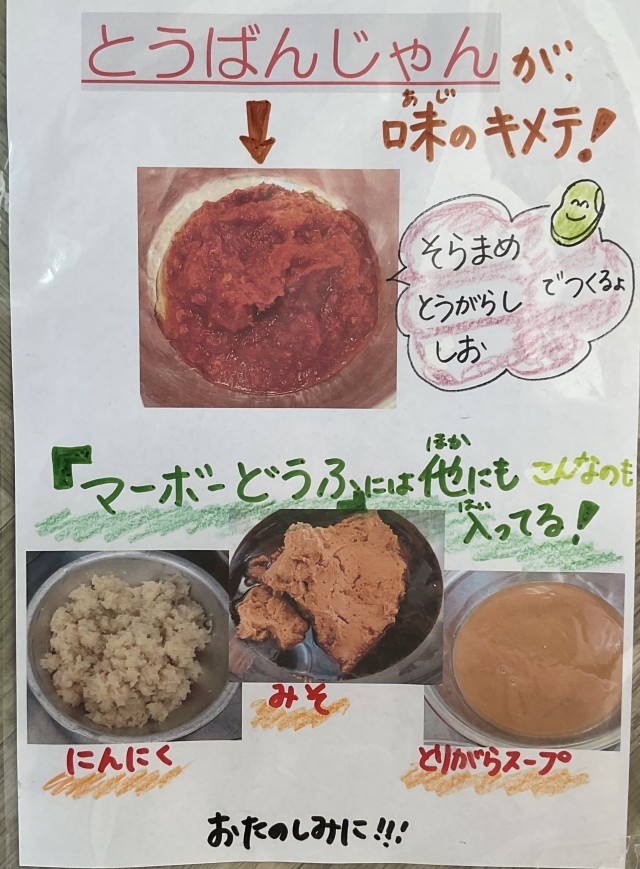 とうばんじゃんが、
味のキメテ!
あじ
そらまめ
とうがらし
しお
でつくるょ
『マーボーどうふ』には他にもこんなのも
ほか
入ってる!
はい
にんにく
みそ
とりがらスープ
おたのしみに!!!